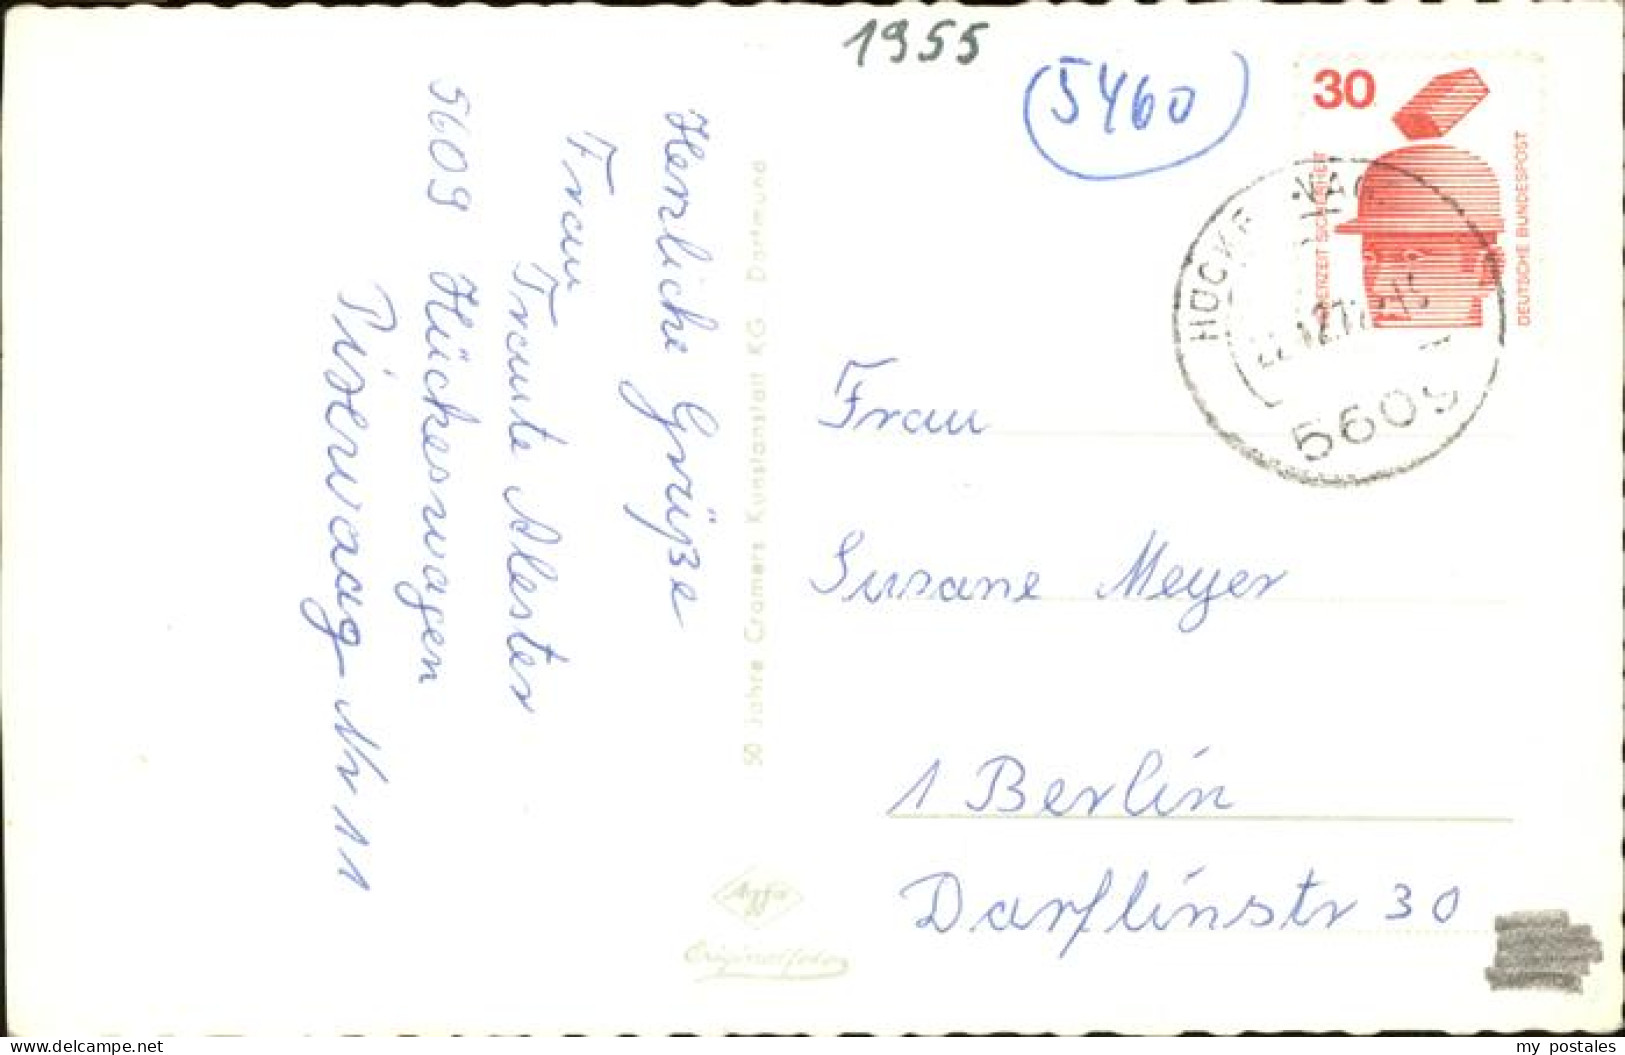 1955
5460
30
JEDERZEIT SICHERHEIT
DEUTSCHE BUNDESPOST
5609
Herzliche Grüße
Frau
Traute Alester
5609 Hückeswagen
Nr 11
50 Jahre Cramers Kunstanstalt KG Dortmund
Frau
Susane Meyer
1 Berlin
Darflinstr 30
Agfa
Originalfoto
www.delcampe.net
my_postales